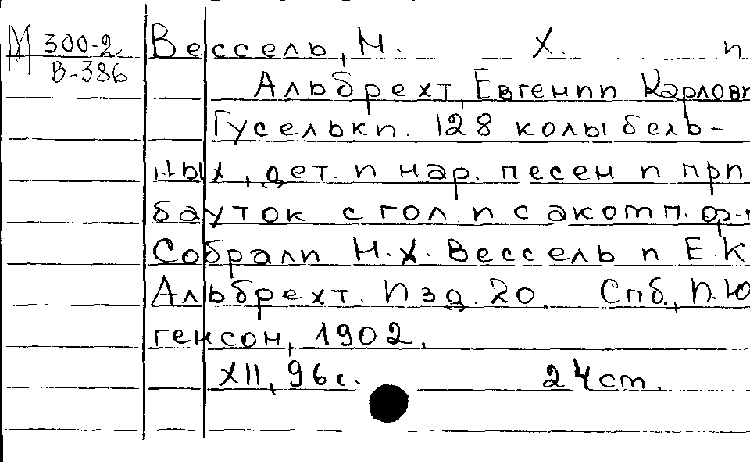 М 300-2
В-386
Вессель, Н. Х. и
Альбрехт, Евгений Карлов
Гусельки. 128 колыбель-
ных, дет. и нар. песен и при
бауток с гол и с акомп. ф-п
Собрали Н.Х. Вессель и Е.К
Альбрехт. Изд. 20. Спб., П. Ю
генсон, 1902.
XII, 96 с. 24 ст.